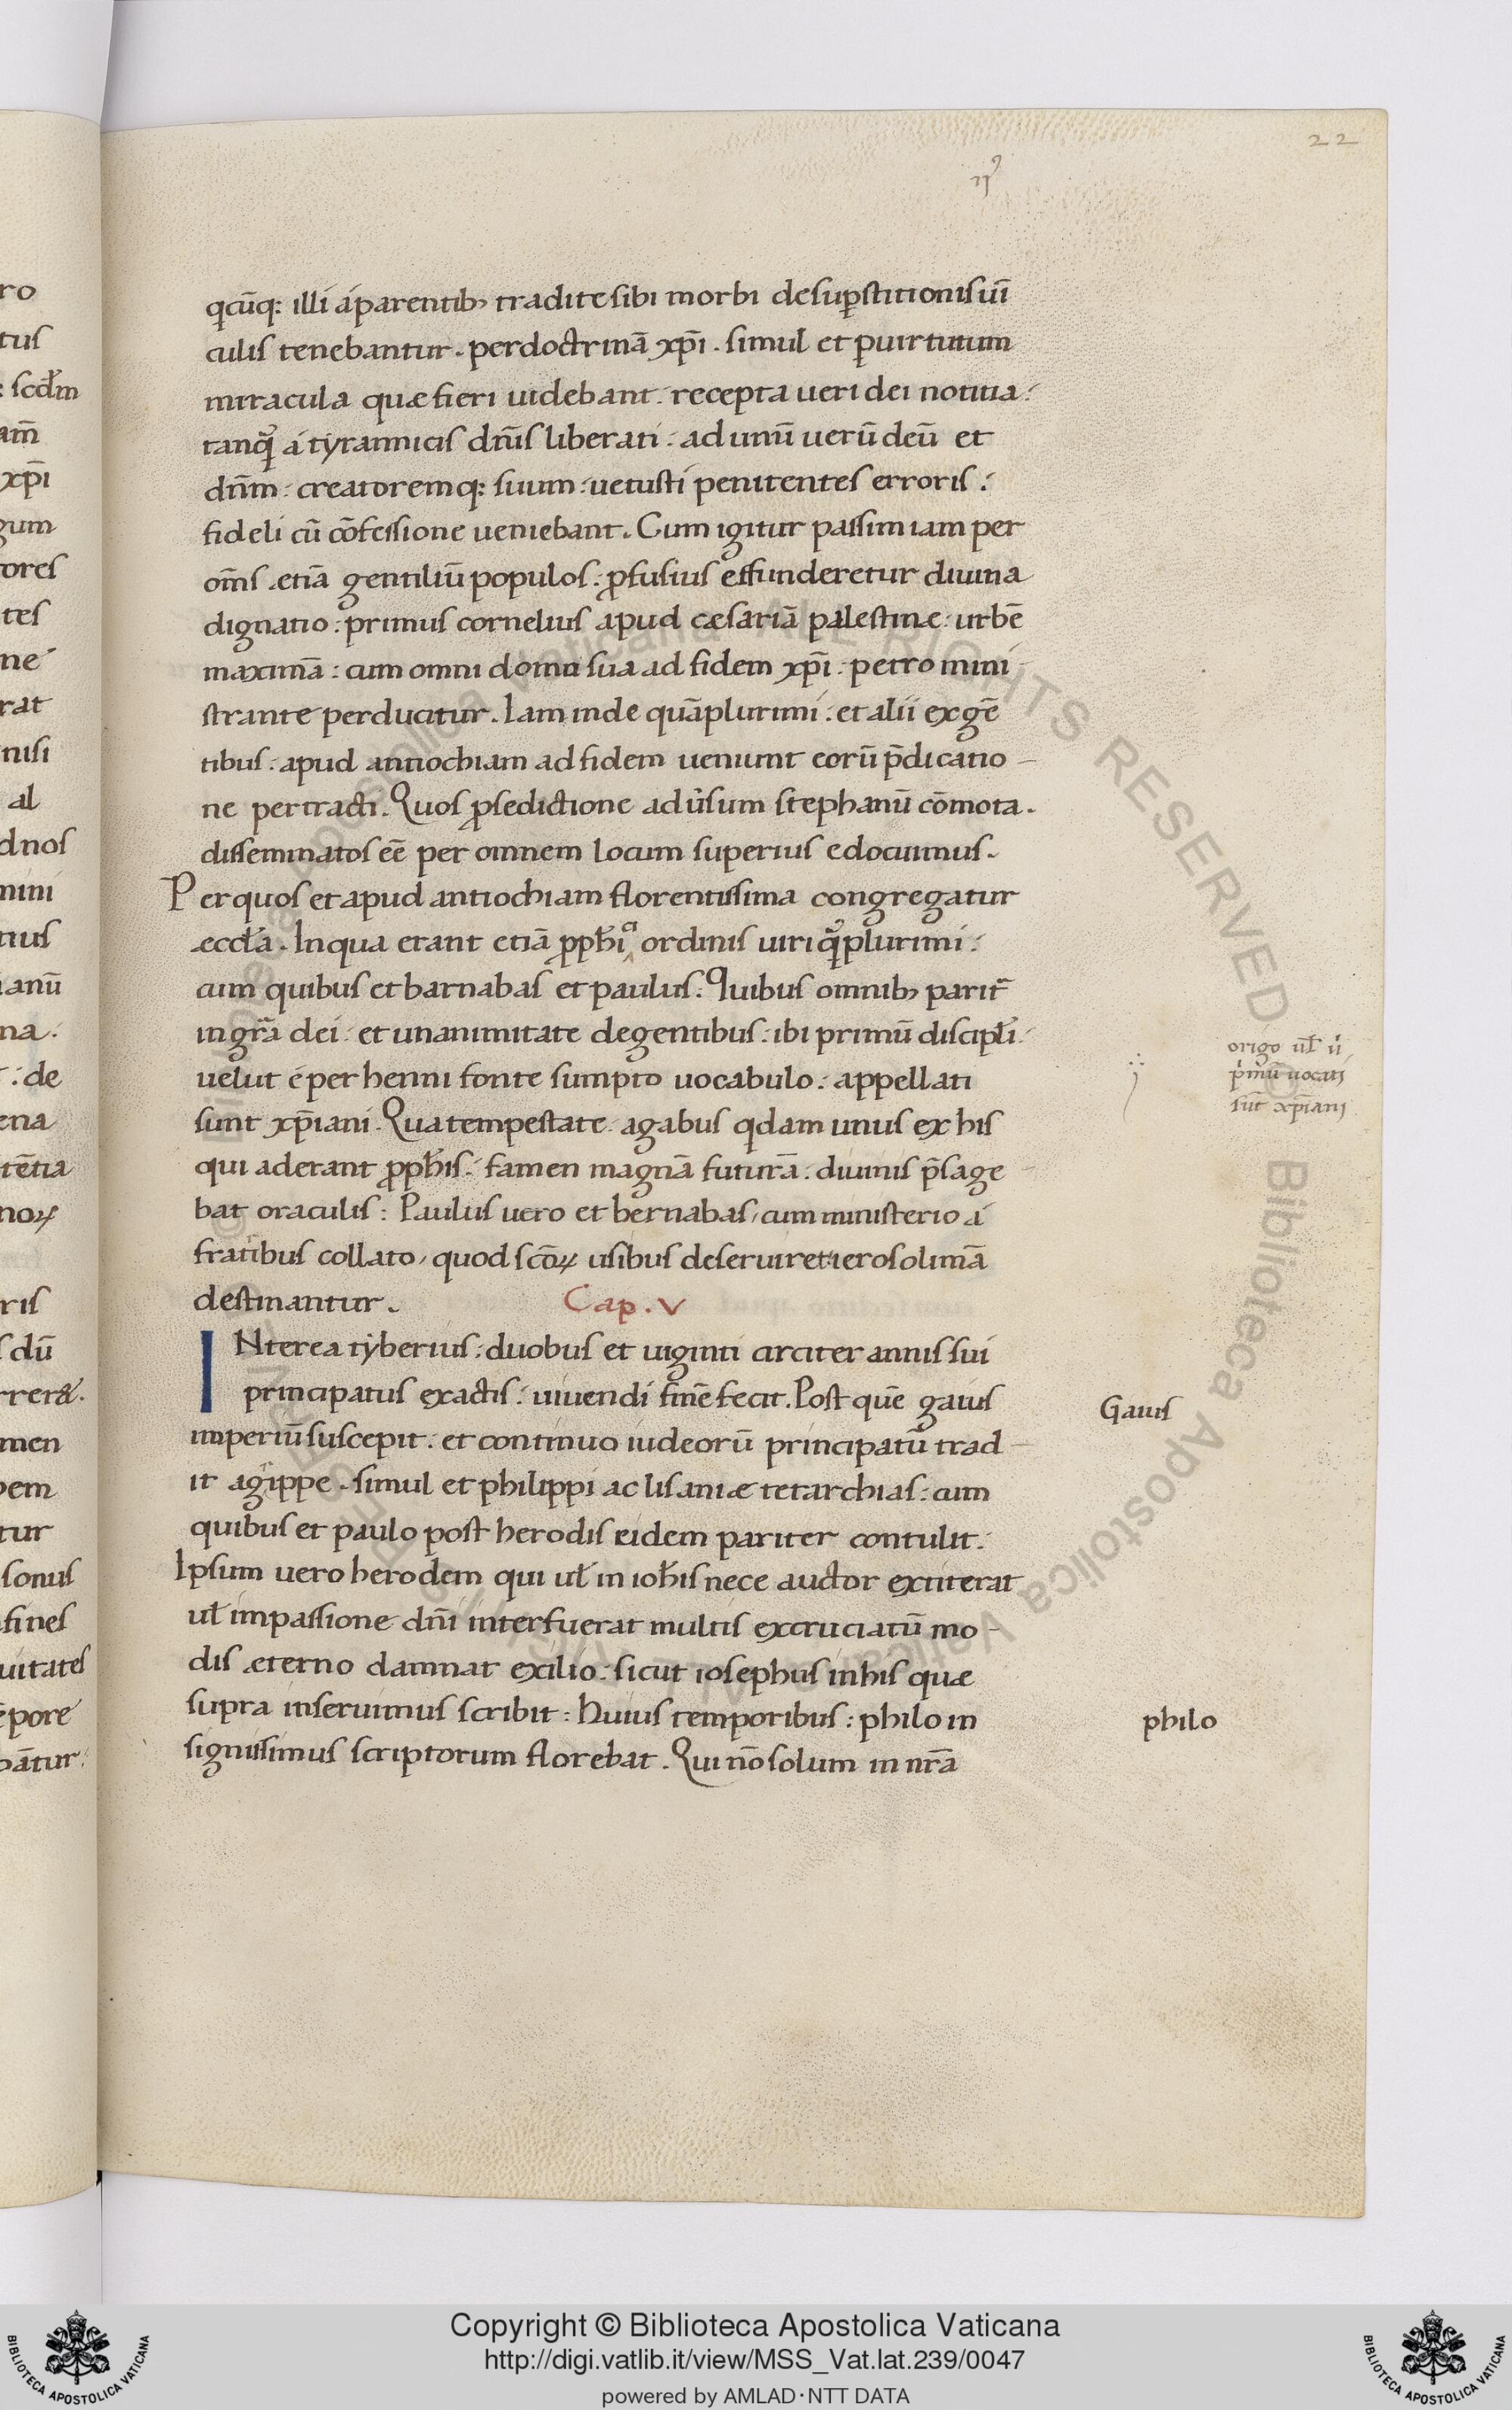 22
ijꝰ
qcūq: illi á parentibꝫ tradite sibi morbi de suꝑstitionis uī
culis tenebantur. per doctrinā xp̄i. simul et ꝑ uirtutum
miracula quæ fieri uidebant: recepta ueri dei notitia:
tanqͣ á tyrannicis dn̄is liberati: ad unū uerū deū et
dn̄m: creatoremq: suum: uetusti penitentes erroris:
fideli cū cōfessione ueniebant. Cum igitur passim iam per
om̄s etiā gentiliū populos: ꝓfusius effunderetur diuina
dignatio: primus cornelius apud cæsariā palestinæ: urbē
maximā: cum omni domu sua ad fidem xp̄i: petro mini
strante perducitur. Iam inde quāplurimi: et alii ex gē
tibus: apud antiochiam ad fidem ueniunt eorū p̄dicatio-
ne pertracti. Quos ꝓ seditione adu̓sum stephanū cōmota.
disseminatos eē per omnem locum superius edocuimus.
Per quos et apud antiochiam florentissima congregatur
æccl̄a. In qua erant etiā ꝓph̄i^ci ordinis uiri qͣplurimi:
cum quibus et barnabas et paulus. Quibus omnibꝫ parit̄
in gr̄a dei: et unanimitate degentibus: ibi primū discipl̄i
uelut é perhenni fonte sumpto uocabulo: appellati
sunt xp̄iani. Qua tempestate: agabus qdam unus ex his
qui aderant ꝓph̄is: famen magnā futurā: diuinis p̄sage-
bat oraculis: Paulus uero et bernabas, cum ministerio á
fratribus collato, quod scōꝝ usibus deseruiret: ierosolimā
destinantur.
Cap. V
INterea tyberius: duobus et uiginti circiter annis sui
principatus exactis: uiuendi finē fecit. Post quē gaius
imperiū suscepit: et continuo iudeorū principatū trad-
it agrippe. simul et philippi ac lisaniæ tetarchias: cum
quibus et paulo post herodis eidem pariter contulit:
Ipsum uero herodem qui ul̄ in ioh̄is nece auctor extiterat
ul̄ impassione dn̄i interfuerat multis excruciatū mo-
dis æterno damnat exilio: sicut iosephus in his quæ
supra inseruimus scribit: Huius temporibus: philo in
signissimus scriptorum florebat. Qui nō solum in nr̄a
origo ul̄ u̇
p̍mū uocati
sūt xp̄iani
Gaius
philo
ro
tus
scd̄m
am̄
xp̄i
gum
tores
tes
ne
rat
nisi
al
dnos
mini
tius
ianū
na.
: de
ena
tētia
noꝝ
ris
s dū
rrer&.
men
pem
tur
sonus
fines
uitates
ēpore
bātur
Copyright © Biblioteca Apostolica Vaticana
http://digi.vatlib.it/view/MSS_Vat.lat.239/0047
powered by AMLAD·NTT DATA
BIBLIOTECA APOSTOLICA VATICANA
BIBLIOTECA APOSTOLICA VATICANA